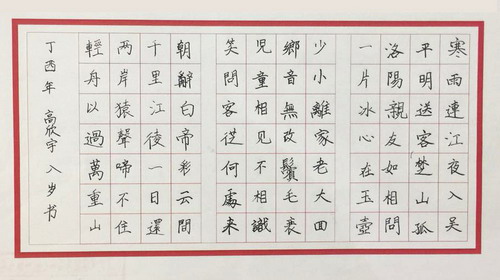 寒雨連江夜入吴
平明送客楚山孤
洛陽親友如相問
一片冰心在玉壺
少小離家老大回
鄉音無改鬢毛衰
児童相见不相識
笑問客從何處来
朝辭白帝彩云間
千里江陵一日還
两岸猿聲啼不住
輕舟以過萬重山
丁酉年 高欣宇 八岁书